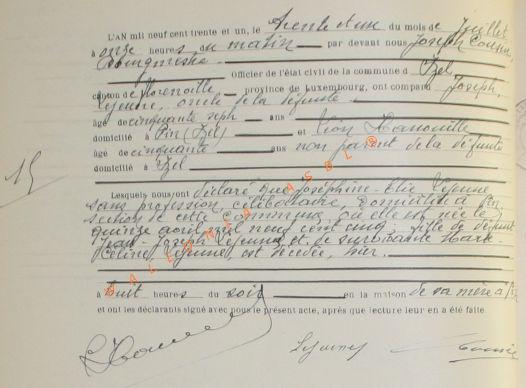 L'AN mil neuf cent trente et un, le Trente et un du mois de Juillet
à onze heures du matin par devant nous Joseph
Bourgmestre
Officier de l'état civil de la commune d' Izel,
canton de Florenville province de Luxembourg, ont comparu Joseph,
Lejeune, oncle de la défunte
âgé de cinquante sept ans
domicilié à Pin (Izel) et Léon Hanouille
âgé de cinquante ans non parent de la défunte
domicilié à Izel
15
Lesquels nous ont déclaré que Joséphine - Elie Lejeune
sans profession, célibataire, domiciliée à Pin,
section de cette commune, où elle est née le
quinze avril mil neuf cent cinq, fille de défunt
Jean - Joseph Lejeune et de survivante Marie
Céline Lejeune est décédée, hier,
à huit heures du soir en la maison de sa mère à Pin
et ont les déclarants signé avec nous le présent acte, après que lecture leur en a été faite.
Lejeune
GALLEANEA ASBL ©